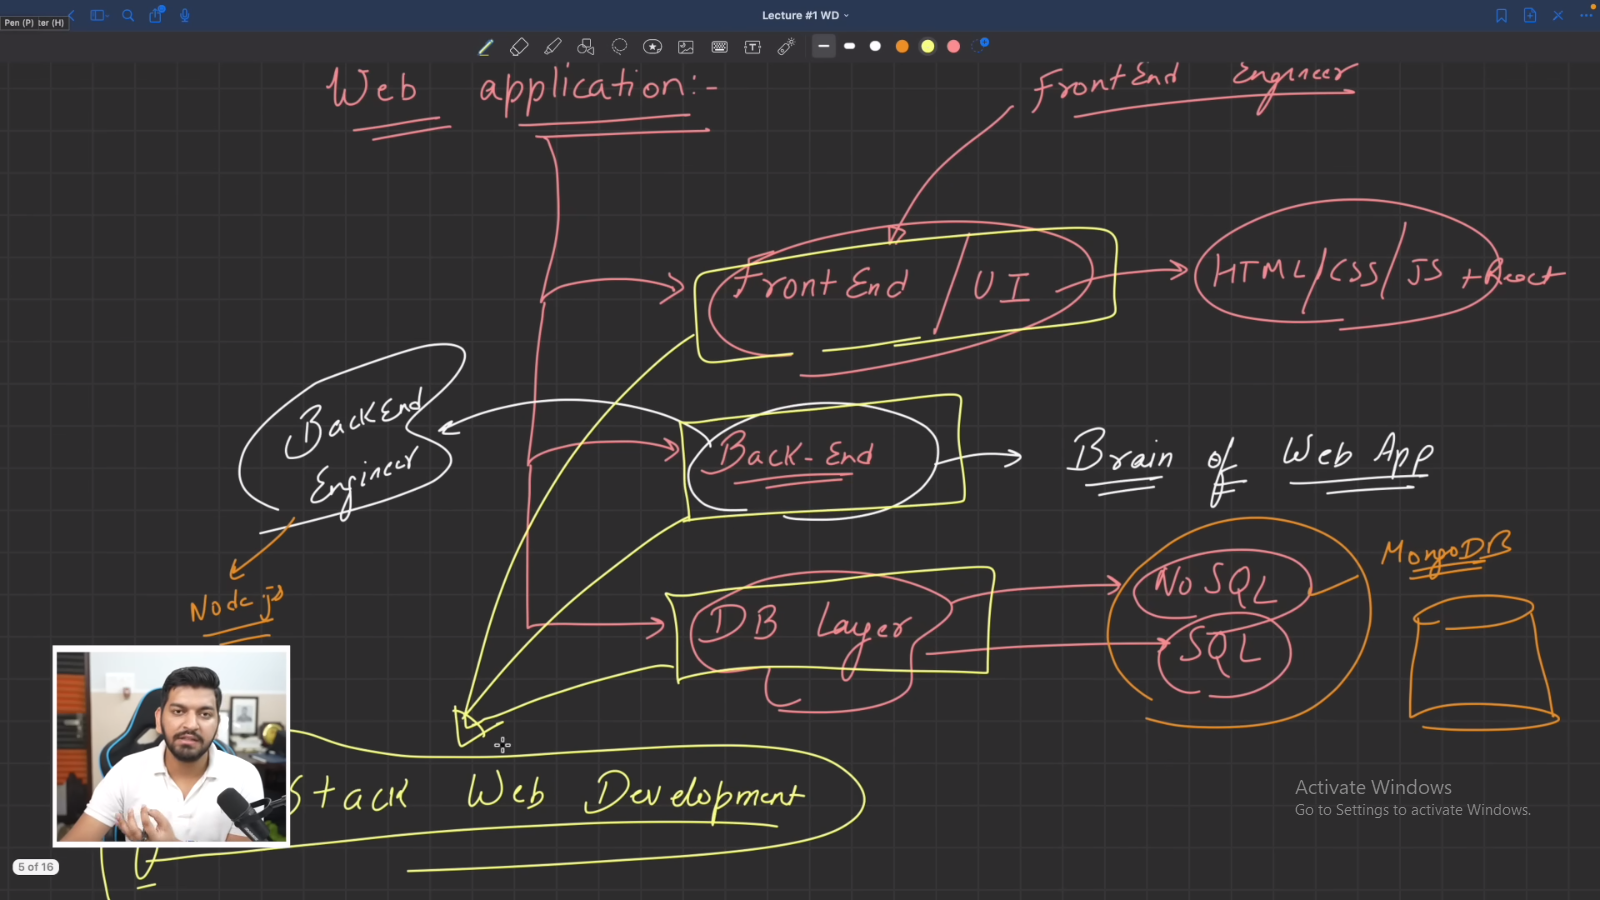 Pen (P)
ter (H)
Lecture #1 WD
Web application:-
FrontEnd Engineer
FrontEnd / UI
HTML/CSS/JS + React
BackEnd
Engineer
Back-End
Brain of Web App
Node js
DB Layer
NoSQL
SQL
MongoDB
Stack Web Development
Activate Windows
Go to Settings to activate Windows.
5 of 16